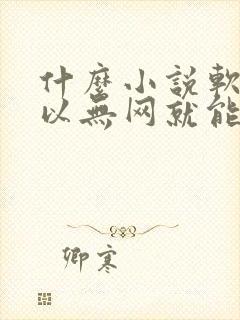 什麼小説軟
以無网就能
卿寒